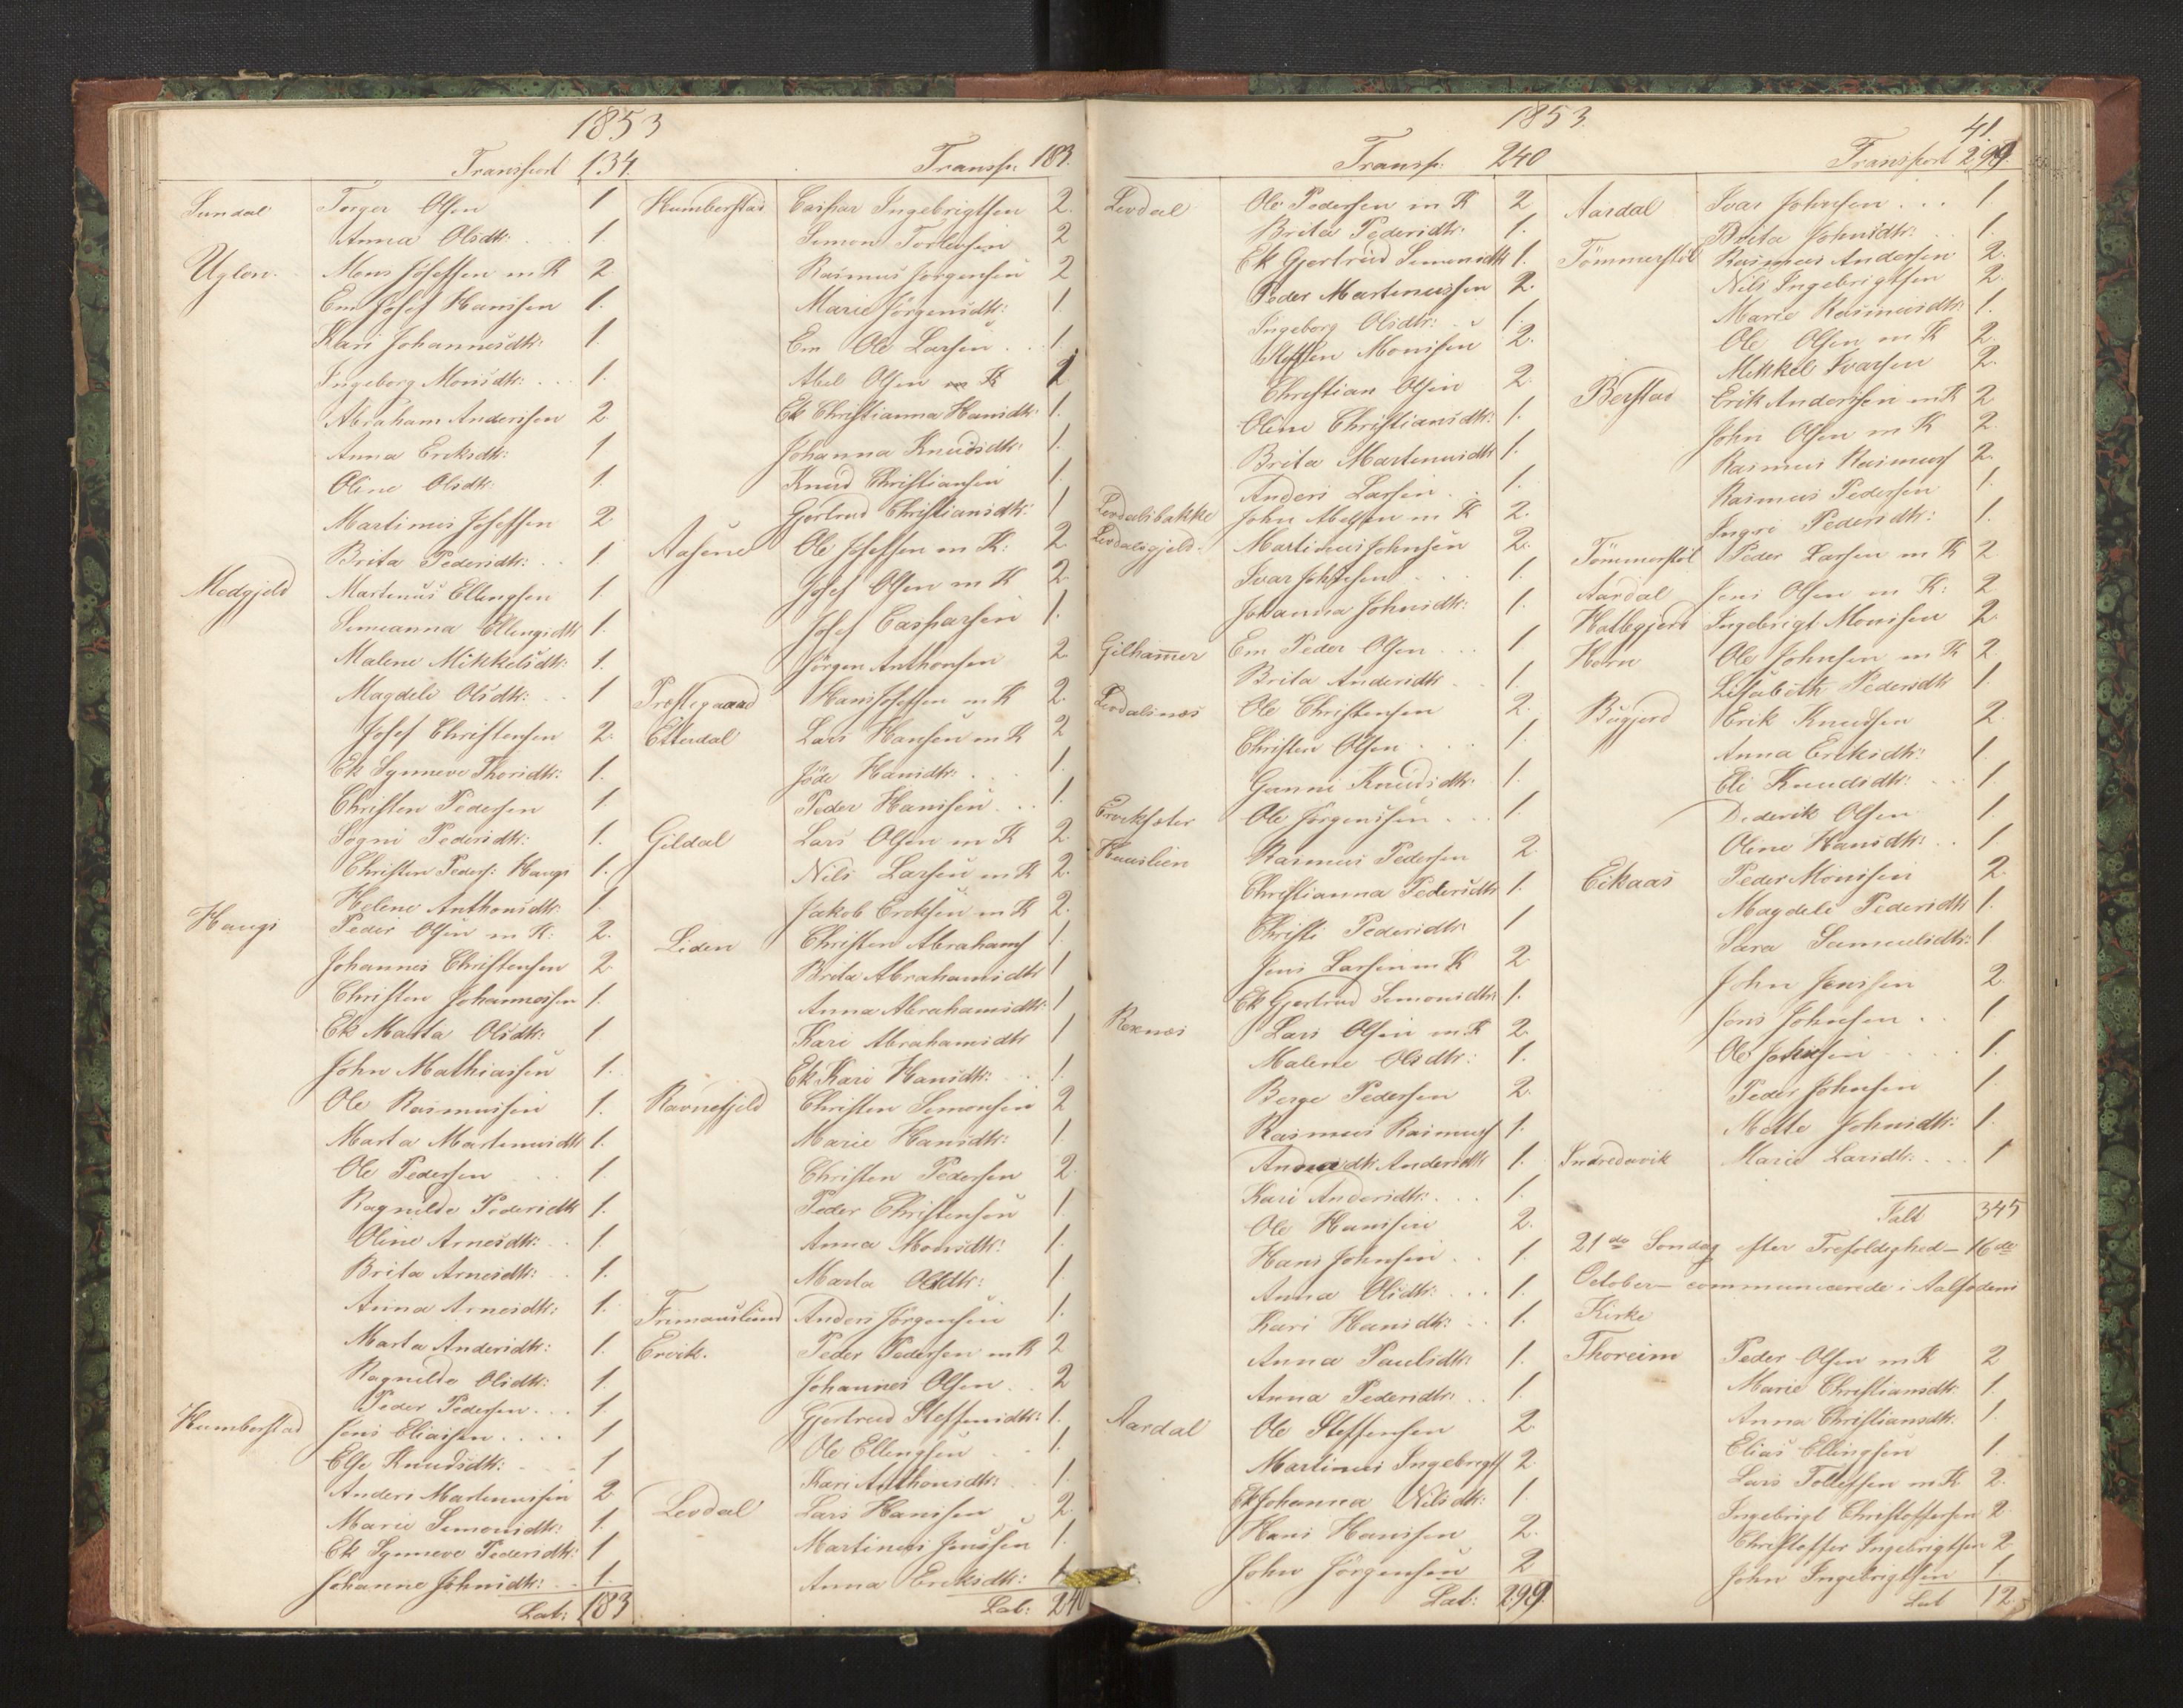 1853
Transport 134.
Sundal Torger Olsen 1
Anna Olsdtr: 1.
Uglen. Mons Josefsen m K 2
Em Josef Hansen 1.
Kari Johannesdtr: 1.
Ingeborg Monsdtr: 1.
Abraham Andersen 2
Anna Eriksdtr: 1
Oline Olsdtr: 1.
Martinus Josefsen 2
Brita Pedersdtr: 1
Medgjeld Martinus Ellingsen 1.
Simeanna Ellingsdtr 1.
Malene Mikkelsdtr: 1.
Magdeli Olsdtr: 1
Josef Christensen 2.
Ek Synneve Thorsdtr: 1.
Christen Pedersen 1.
Sogni Pedersdtr: 1.
Christen Peders: Haugs 1.
Helene Anthonsdtr 1.
Haugs Peder Olsen m K: 2.
Johannes Christensen 2
Christen Johannessen 1.
Ek Marta Olsdtr: 1
John Mathiassen 1.
Ole Rasmussen 1.
Marta Martinusdtr 1.
Ole Pedersen 1.
Ragnilde Pedersdtr 1.
Oline Arnesdtr: 1
Brita Arnesdtr: 1.
Anna Arnesdtr: 1.
Marta Andersdtr: 1.
Ragnilde Olsdtr: 1.
Peder Pedersen 1.
Humberstad Jens Eliasen 1
Else Knudsdtr: 1
Anders Martinussen 2
Marie Simonsdtr: 1.
Ek Synneve Pedersdtr: 1
Johanne Johnsdtr: 1.
Lat: 183
Transp: 183.
Humberstad Caspar Ingebrigtsen 2.
Simon Torlevsen 2
Rasmus Jorgensen 2
Marie Jörgensdtr: 1.
Em Ole Larsen 1
Abel Olsen m K 2
Ek Christianna Hansdtr: 1.
Johanna Knudsdtr: 1.
Knud Christiansen 1
Gjertrud Christiansdtr: 1
Aasene Ole Josefsen m K: 2.
Josef Olsen m K 2
Josef Casparsen 1.
Jörgen Anthonsen 2
Prestegaard Hans Josefsen m K 2.
Etterdal Lars Hansen m K 2
Jöde Hansdtr: 1.
Peder Hansen 1.
Gildal Lars Olsen m K 2
Nils Larsen m K 2.
Jakob Eriksen m K 2.
Liden Christen Abrahams 1
Brita Abrahamsdtr 1
Anna Abrahamsdtr: 1
Kari Abrahamsdtr 1
Ek Kari Hansdtr: 1.
Ravnefjeld Christen Simonsen 2
Marie Hansdtr: 1
Christen Pedersen 2
Peder Christensen 1.
Anna Monsdtr: 1.
Marta Olsdtr: 1
Frimanslund Anders Jörgensen 1.
Ervik. Peder Pedersen m K 2
Johannes Olsen 2
Gjertrud Steffensdtr: 1.
Ole Ellingsen 1.
Kari Anthonsdtr: 1.
Levdal Lars Hansen 2.
Martinus Jenssen 1.
Anna Eriksdtr: 1
Lat: 240
1853.
41.
Transp: 240
Levdal Ole Pedersen m K 2
Brita Pedersdtr: 1.
Ek Gjertrud Simonsdtr 1.
Peder Martinussen 2.
Ingeborg Olsdtr: 1.
Steffen Monsen 2.
Christian Olsen 2.
Oline Christiansdtr: 1.
Brita Martinusdtr 1.
Anders Larsen 1.
Levdalsbakke John Abelsen m K 2.
Levdalsgjeld. Martinus Johnsen 2.
Ivar Johnsen 1.
Johanna Johnsdtr: 1.
Gilhammer Em Peder Olsen 1
Brita Andersdtr 1.
Levdalsnes Ole Christensen 2.
Christen Olsen 1.
Gunni Knudsdtr: 1.
Ervikseter Ole Jörgensen 1.
Kuuslien Rasmus Pedersen 2.
Christianna Pedersdtr 1.
Christi Pedersdtr 1
Jens Larsen m K 2
Ek Gjertrud Simonsdtr 1.
Rexnes Lars Olsen m K 2.
Malene Olsdtr: 1.
Berge Pedersen 2.
Rasmus Rasmuss 1.
Andersdtr 1.
Kari Andersdtr: 1.
Ole Hansen 2.
Hans Johnsen 1.
Anna Olsdtr: 1.
Kari Hansdtr: 1.
Anna Paulsdtr 1.
Anna Pedersdtr: 1.
Aardal Ole Steffensen 2
Martinus Ingebrigts 2
Ek Johanna Nilsdtr: 1.
Hans Hansen 2.
John Jörgensen 2
Lat: 299.
Transport 299.
Aardal Ivar Johnsen 1.
Brita Johnsdtr: 1.
Tömmerstöl Rasmus Andersen 2.
Nils Ingebrigtsen 2.
Marie Rasmusdtr: 1.
Ole Olsen m K 2.
Mikkel Ivarsen 2.
Berstad Erik Andersen m K 2
John Olsen m K 2.
Rasmus Rasmuss 2.
Rasmus Pedersen 1.
Ingri Pedersdtr: 1.
Tömmerstöl Peder Larsen m K 2
Aardal Jens Olsen m K: 2
Hatlegjerd Ingebrigt Monsen 2.
Horn Ole Johnsen m K 2
Lisabeth Pedersdtr 1.
Bugjerd Erik Knudsen 2.
Anna Eriksdtr: 1.
Eli Knudsdtr: 1.
Diderik Olsen 1.
Oline Hansdtr: 1
Eikaas Peder Monsen 2.
Magdeli Pedersdtr 1.
Sara Samuelsdtr: 1
John Jenssen 2.
Jens Johnsen 1
Ole Johnsen 1.
Peder Johnsen 1
Mette Johnsdtr: 1.
Indrevik Marie Larsdtr. 1
Ialt 345
21de Sondag efter Trefoldighed – 16de
October – communicerede i Aalfodens
Kirke
Thoreim Peder Olsen m K 2
Marie Christiansdtr 1.
Anna Christiansdtr. 1.
Elias Ellingsen 1.
Lars Tollefsen m K 2.
Ingebrigt Christoffersen 2
Christoffer Ingebrigtsen 2
John Ingebrigtsen 1
Lat 12.